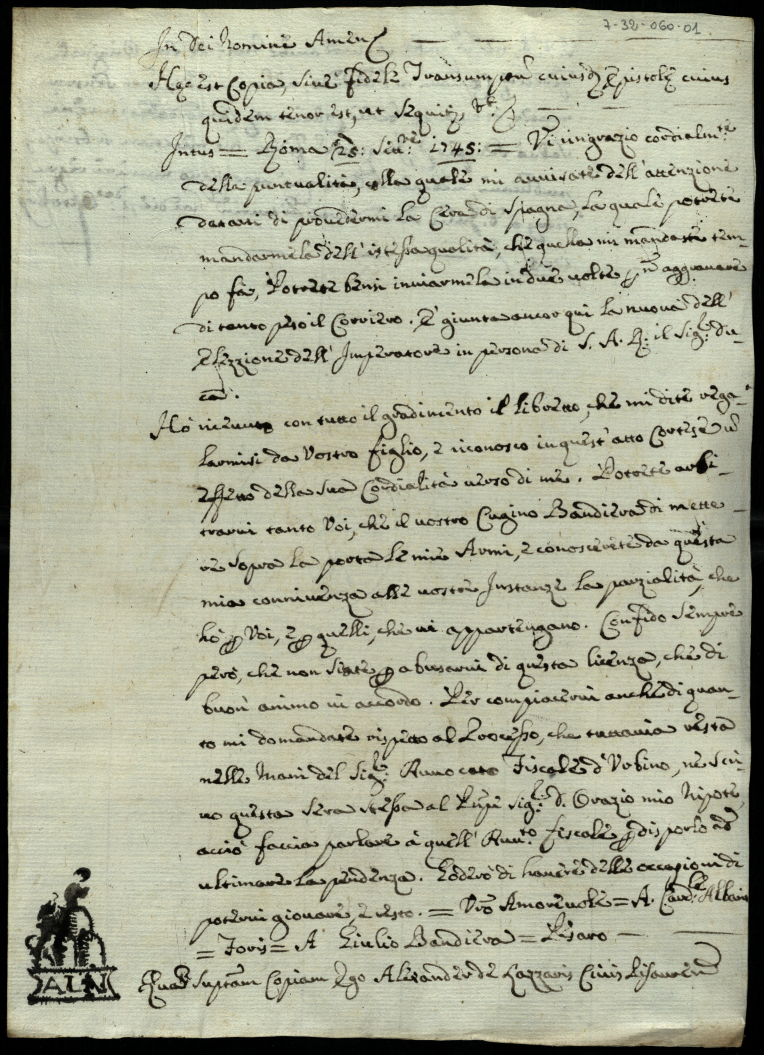 7-32-060-01
In Dei Nomine Amen
Hęc est Copia, sive fidele Transumptũ cuiusdã Epistolę cuius
quidem tenor est, ut sequitr, Vt.
Intus = Roma 25: Settre: 1745: = Vi ringrazio cordialmte
della puntualità, colla quale mi avvisate dell'attenzione
datavi di provedermi la Cera di Spagna, la quale potrete
mandarmela dell'istessa qualità, che quella mi mandaste tem-
po fà, Potrete bensi inviarmela in due volte p nõ aggravare
di tanto peso il Corriero. E' giunta ancor qui la nuova dell'
Elezzione dell'Imperatore in persona di S. A. R: il Sigr: Du-
ca.
Hò ricevuto con tutto il gradimento il libretto, che mi dite rega-
larmisi da Vostro figlio, e riconosco in quest'atto Cortese un
effetto della sua Cordialità verso di me. Potete arbi-
trarvi tanto Voi, che il vostro Cugino Bandiera di mette-
re sopra la porta le mie Armi, e conoscerete da questa
mia connivenza alle vostre Instanze la parzialità, che
hò p Voi, e p quelli, che vi appartengano. Confido sempre
però, che non siate p abusarvi di questa licenza, che di
buon animo vi accordo. Per compiacervi anche di quan-
to mi domandate rispetto al Processo, che tuttavia resta
nelle Mani del Sigr: Avvocato Fiscale d'Urbino, ne scri-
vo questa sera stessa al Pñpe Sigr: D. Orazio mio Nipote,
acciò faccia parlare à quell'Avvto: fiscale p disporlo ad
ultimare la pendenza. Goderò di havere delle occasioni di
potervi giovare, e resto. = Vrõ Amorevole = A. Cardle Albani
= Foris = A Giulio Bandiera = Pesaro
Quam Suptam Copiam Ego Alexander de Lazzaris Civis Pisauren
ALN